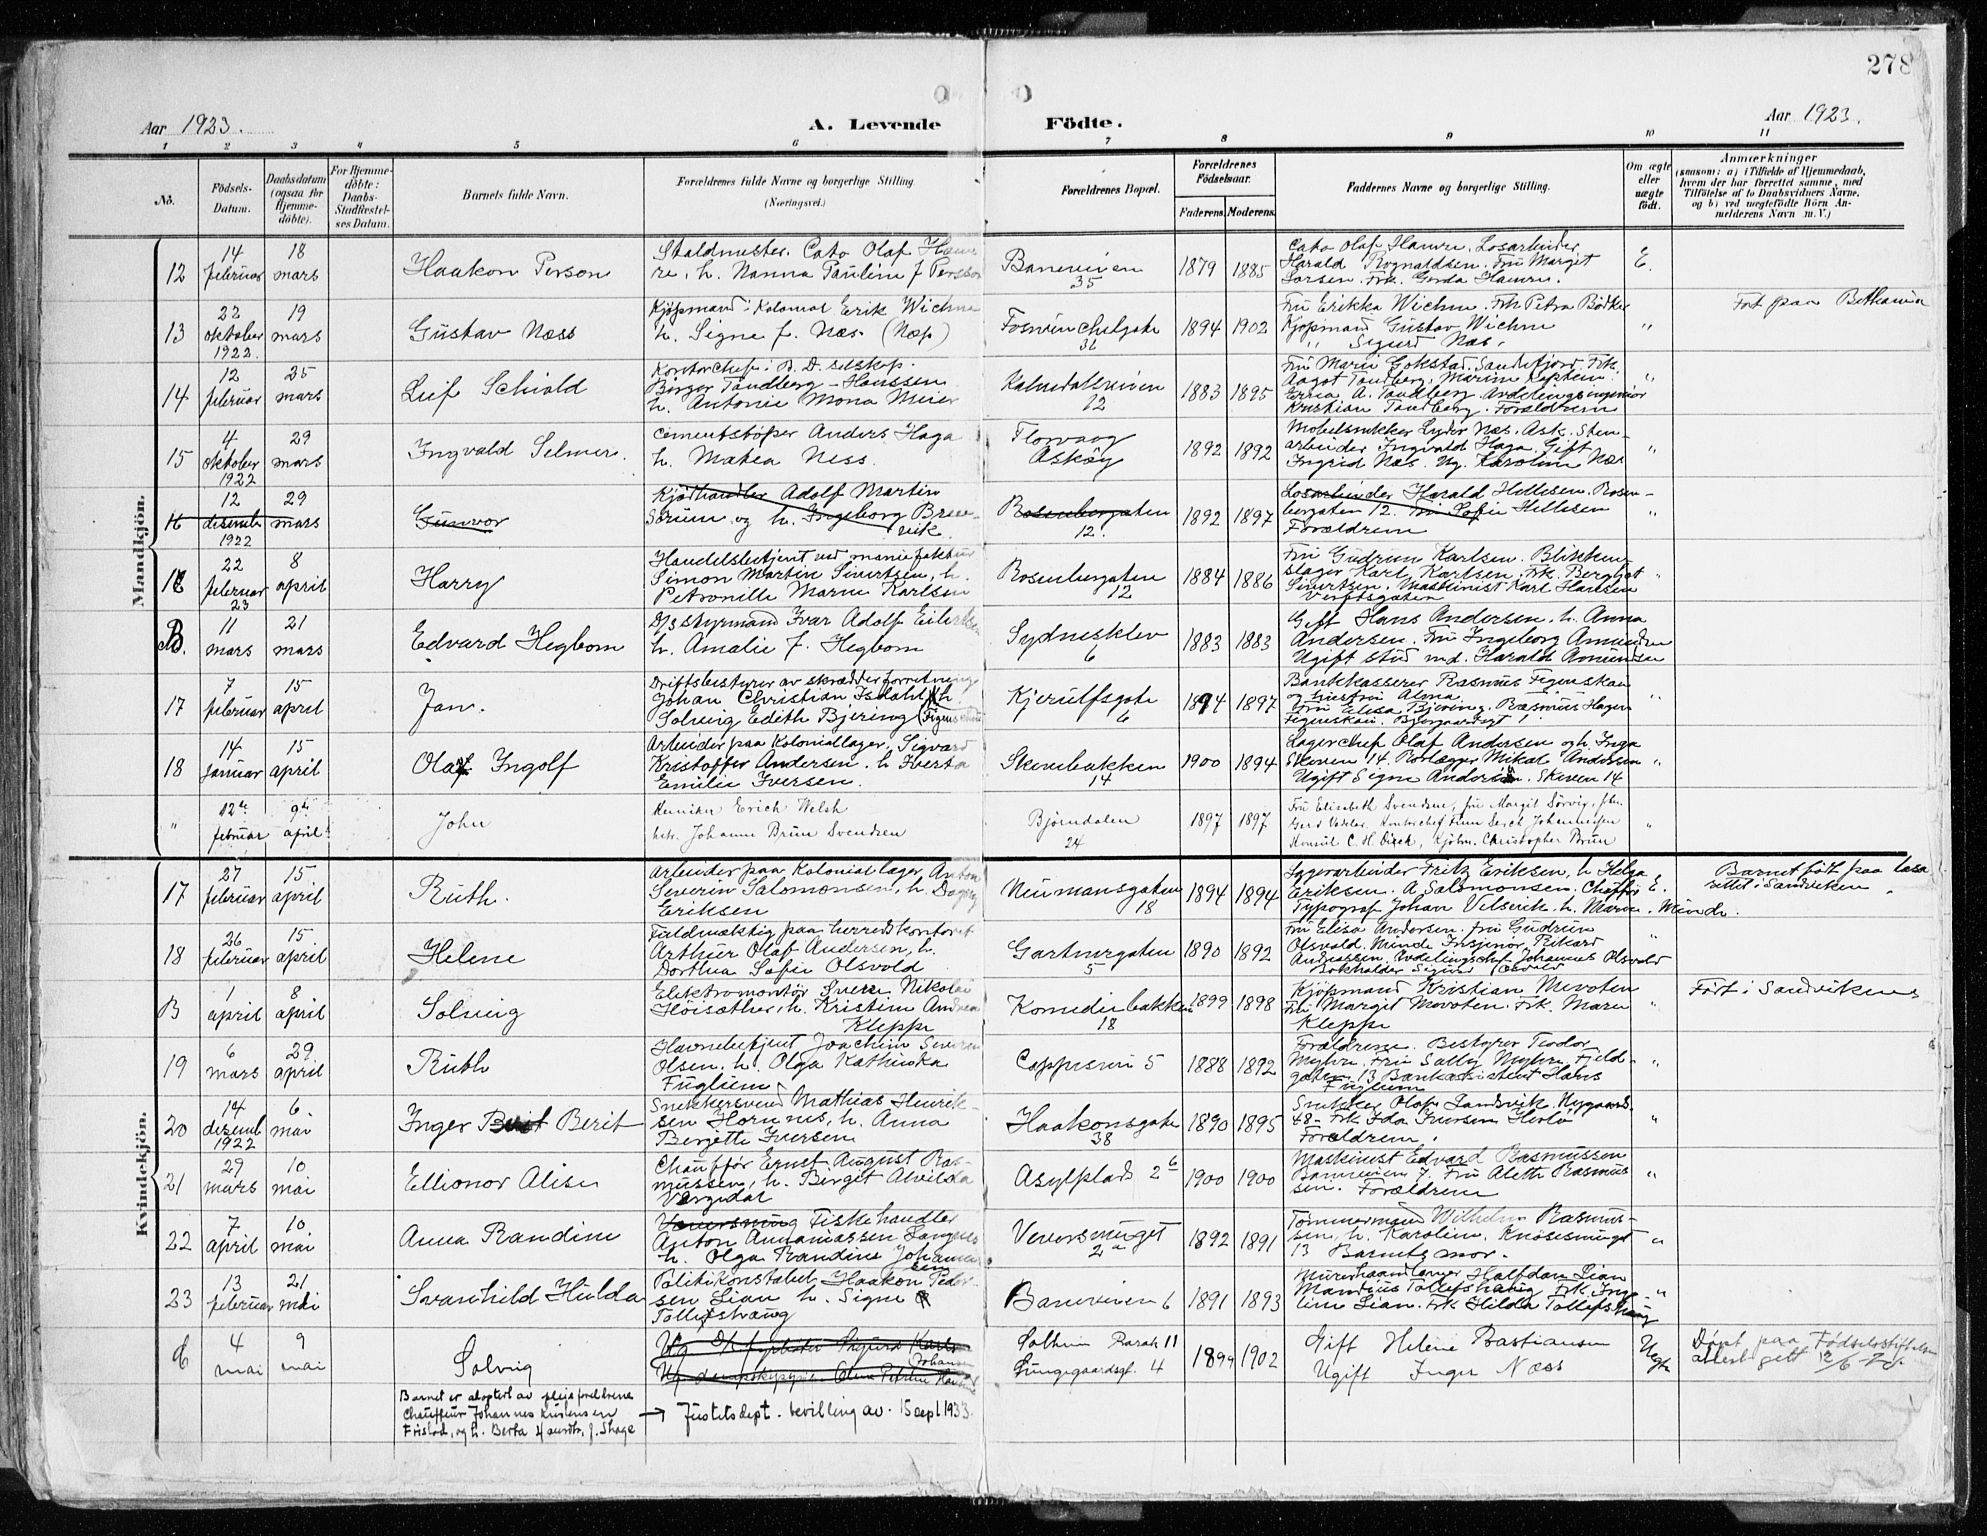 278
Aar 1923.
A. Levende Födte.
Aar 1923.
1 2 3 4 5 6 7 8 9 10 11
No.
Födsels-Datum.
Daabsdatum (ogsaa for Hjemmedöbte).
For Hjemmedöbte: Daabs-Stadfæstelses Datum.
Barnets fulde Navn.
Forældrenes fulde Navne og borgerlige Stilling.
(Næringsvei.)
Forældrenes Bopæl.
Forældrenes Födselsaar.
Faderens. Moderens.
Faddernes Navne og borgerlige Stilling.
Om ægte eller uægte födt.
Anmærkninger
(saasom: a) i Tilfælde af Hjemmedaab, hvem der har forrettet samme, med Tilföielse af to Daabsvidners Navne, og b) ved uægtefödte Börn Anmelderens Navn m. V.)
Mandkjön.
12 14 februar 18 mars
Haakon Person
Staldmester Cato Olaf Hamre, h. Nanna Pauline f. Persson
Baneveien 35
1879 1885
Cato Olaf Hamre. Losarbeider
Harald Rognaldsen. Fru Margit
Larsen. Frk. Gerda Hamre.
E.
13 22 oktober 1922. 19 mars
Gustav Næss
Kjøpmand i Kolonial Erik Wichne
h. Signe f. Næs. (Næss)
31
1894 1902
Fru Erikka Wichne. Frk. Petra Bødker
Kjøpmand Gustav Wichne
„ Sigurd Næs.
„
Født paa Bethanien
14 12 februar 25 mars
Leif Schiold
Kontorchef i B. D. selskap.
Birger Tandberg-Hanssen
h. Antonie Mona Meier
Kalvedalsveien 12
1883 1895
Fru Marie Gokstad. Sandefjord. Frk.
Aagot Tandberg. Marine Kaptein
Erna A. Tandberg. Avdelingsingeniør
Kristian Tandberg. Forældrene
„
15 4 oktober 1922 29 mars
Ingvald Selmer.
Cementstøper Anders Haga
h. Matea Ness.
Florvaag
Askøy
1892 1892
Møbelsnekker Lyder Næs. Ask. Sten-
arbeider Ingvald Haga. Gift
Ingrid Næs. Ug. Karoline Næs
„
16 12 desember 1922 29 mars
Gunvor
Kjødhandler Adolf Martin
Sørum og h. Ingeborg Brevik.
Rosenbergaten 12.
1892 1897
Losarbeider Harald Hellesen. Rosen-
bergaten 12. Fru Sofie Hellesen
Forældrene
„
16 22 februar 23 8 april
Harry
Handelsbetjent ved manufaktur
Simon Martin Sivertsen, h.
Petronille Marie Karlsen
Rosenbergaten 12
1884 1886
Fru Gudrun Karlsen. Blikken-
slager Karl Karlsen. Frk. Bergljot
Sivertsen. Maskinist Karl Hansen
Verftsgaten
„
B. 11 mars 21 mars
Edvard Hegbom
D/s styrmand Ivar Adolf Eilertsen
h. Amalie f. Hegbom
Sydnesklev 6
1883 1883
Gift Hans Andersen. h. Anna
Andersen. Fru Ingeborg Amundsen
Ugift stud med. Harald Amundsen
17 7 februar 15 april
Jan.
Driftsbestyrer av skrædderforretning
Johan Christian Isdahl, h.
Solveig Edith Bjering (Figenschau
Kjerulfsgate 6
1894 1897
Bankkasserer Rasmus Figenskau
og hustru Alma
Fru Elisa Bjering. Rasmus Hagen
Figenskau.
„
18 14 januar 15 april
Olaf Ingolf
Arbeider paa Koloniallager, Sigvard
Kristoffer Andersen. h. Sverta
Emilie Iversen.
Skivebakken 14
1900 1894
Lagerchef Olaf Andersen og h. Inga
Skiven 14. Rørlægger Mikal Andersen
Ugift Signe Andersen. Skiven 14
„
„ 12te februar 9de april
John
Kemiker Erich Welsh
hst. Johanne Brun Svendsen
Bjørndalen 24
1897 1897
Fru Elisabeth Svendsen, fru Margit Sörvig, frk.
Konsul C. H. Dieck, Kjøbm. Christopher Brun
„
Kvindekjön.
17 27 februar 15 april
Ruth.
Arbeider paa Koloniallager, Anton
Severin Salomonsen, h. Dagny
Eriksen
Neumansgaten 18
1894 1894
Lagerarbeider Fritz Eriksen, h. Helga
Eriksen. A. Salomonsen. Chaffør
Typograf Johan Velserik. h. Marie. Minde.
E.
Barnet født paa Lasa
rettet i Sandviken
18 26 februar 15 april
Helene
Fuldmægtig paa herredskontoret
Arthur Olaf Andersen, h.
Dorthea Sofie Olsvold
Gartnergaten 5
1890 1892
Fru Elisa Andersen. Fru Gudrun
Olsvold. Minde Insjenør Rikard
Andreassen. Avdelingschef Johannes Olsvold
Bokholder Sigurd Olsvold
„
B 1 april 8 april
Solveig
Elektromontør Sverre Nikolai
Høisæther, h. Kristine Andrea
Kleppe
Komediebakken 18
1899 1898
Kjøpmand Kristian Movoten
Fru Margit Movoten. Frk. Marie
Kleppe
„
Født i Sandviken
19 6 mars 29 april
Ruth
Havnebetjent Joachim Severin
Olsen. h. Olga Kathinka
Fugliem
Cappesvei 5
1888 1892
Forældrene. Bestyrer Teodor
Myhre. Fru Sally Myhre. Fjeld-
gaten 13 Bankassistent Hans
Fugliem
„
20 14 desemb 1922 6 mai
Inger Berit Berit
Snekkersvend Mathias Henrik-
sen Hornnes, h. Anna
Bergitte Iversen
Haakonsgate 38
1890 1895
Snekker Olaf Landsvik. Nygaards.
48 - Frk Ida Iversen Herlø
Forældrene.
„
21 29 mars 10 mai
Ellionor Alise
Chauffør Ernst August Ras-
mussen, h. Birgit Alvilda
Vergedal
Asylplads 2 6
1900 1900
Maskinist Edvard Rasmussen
Baneveien 7. Fru Aleth Rasmus
sen. Forældrene
„
22 7 april 10 mai
Anna Randine
Veversmug Fiskehandler
Anton Annaniassen Langnes
h. Olga Randine Johanne
sen
Veversmuget 2a
1892 1891
Tømmermand Wilhelm Rasmus-
sen, h. Karoline. Knøsesmuget
13 Barnets mor.
„
23 13 februar 21 mai
Svanhild Hulda
Politikonstabel Haakon Peder-
sen Lian h. Signe
Tollefshaug
Baneveien 6
1891 1893
Murerhaandlanger Halfdan Lian
Mandius Tollefshaug Frk. Inge-
line Lian. Frk. Hilda Tollefshaug
„
C 4 mai 9 mai
Solveig
Ug. Sigurd Karls
Johansen
Ug.
Solheim Barak 11
Lungegaardsgt. 4
1899 1902
Gift Helene Bastiansen
Ugift Inger Næss
Uegte
Døpt paa Fødselsstiftelsen
attest gett 12/6
Barnet er adoptert av pleieforeldrene
Chauffeur Johannes Kristensen
Fristad, og h. Berta f. Skage
→ Justitsdept. bevilling av 15 sept 1933.